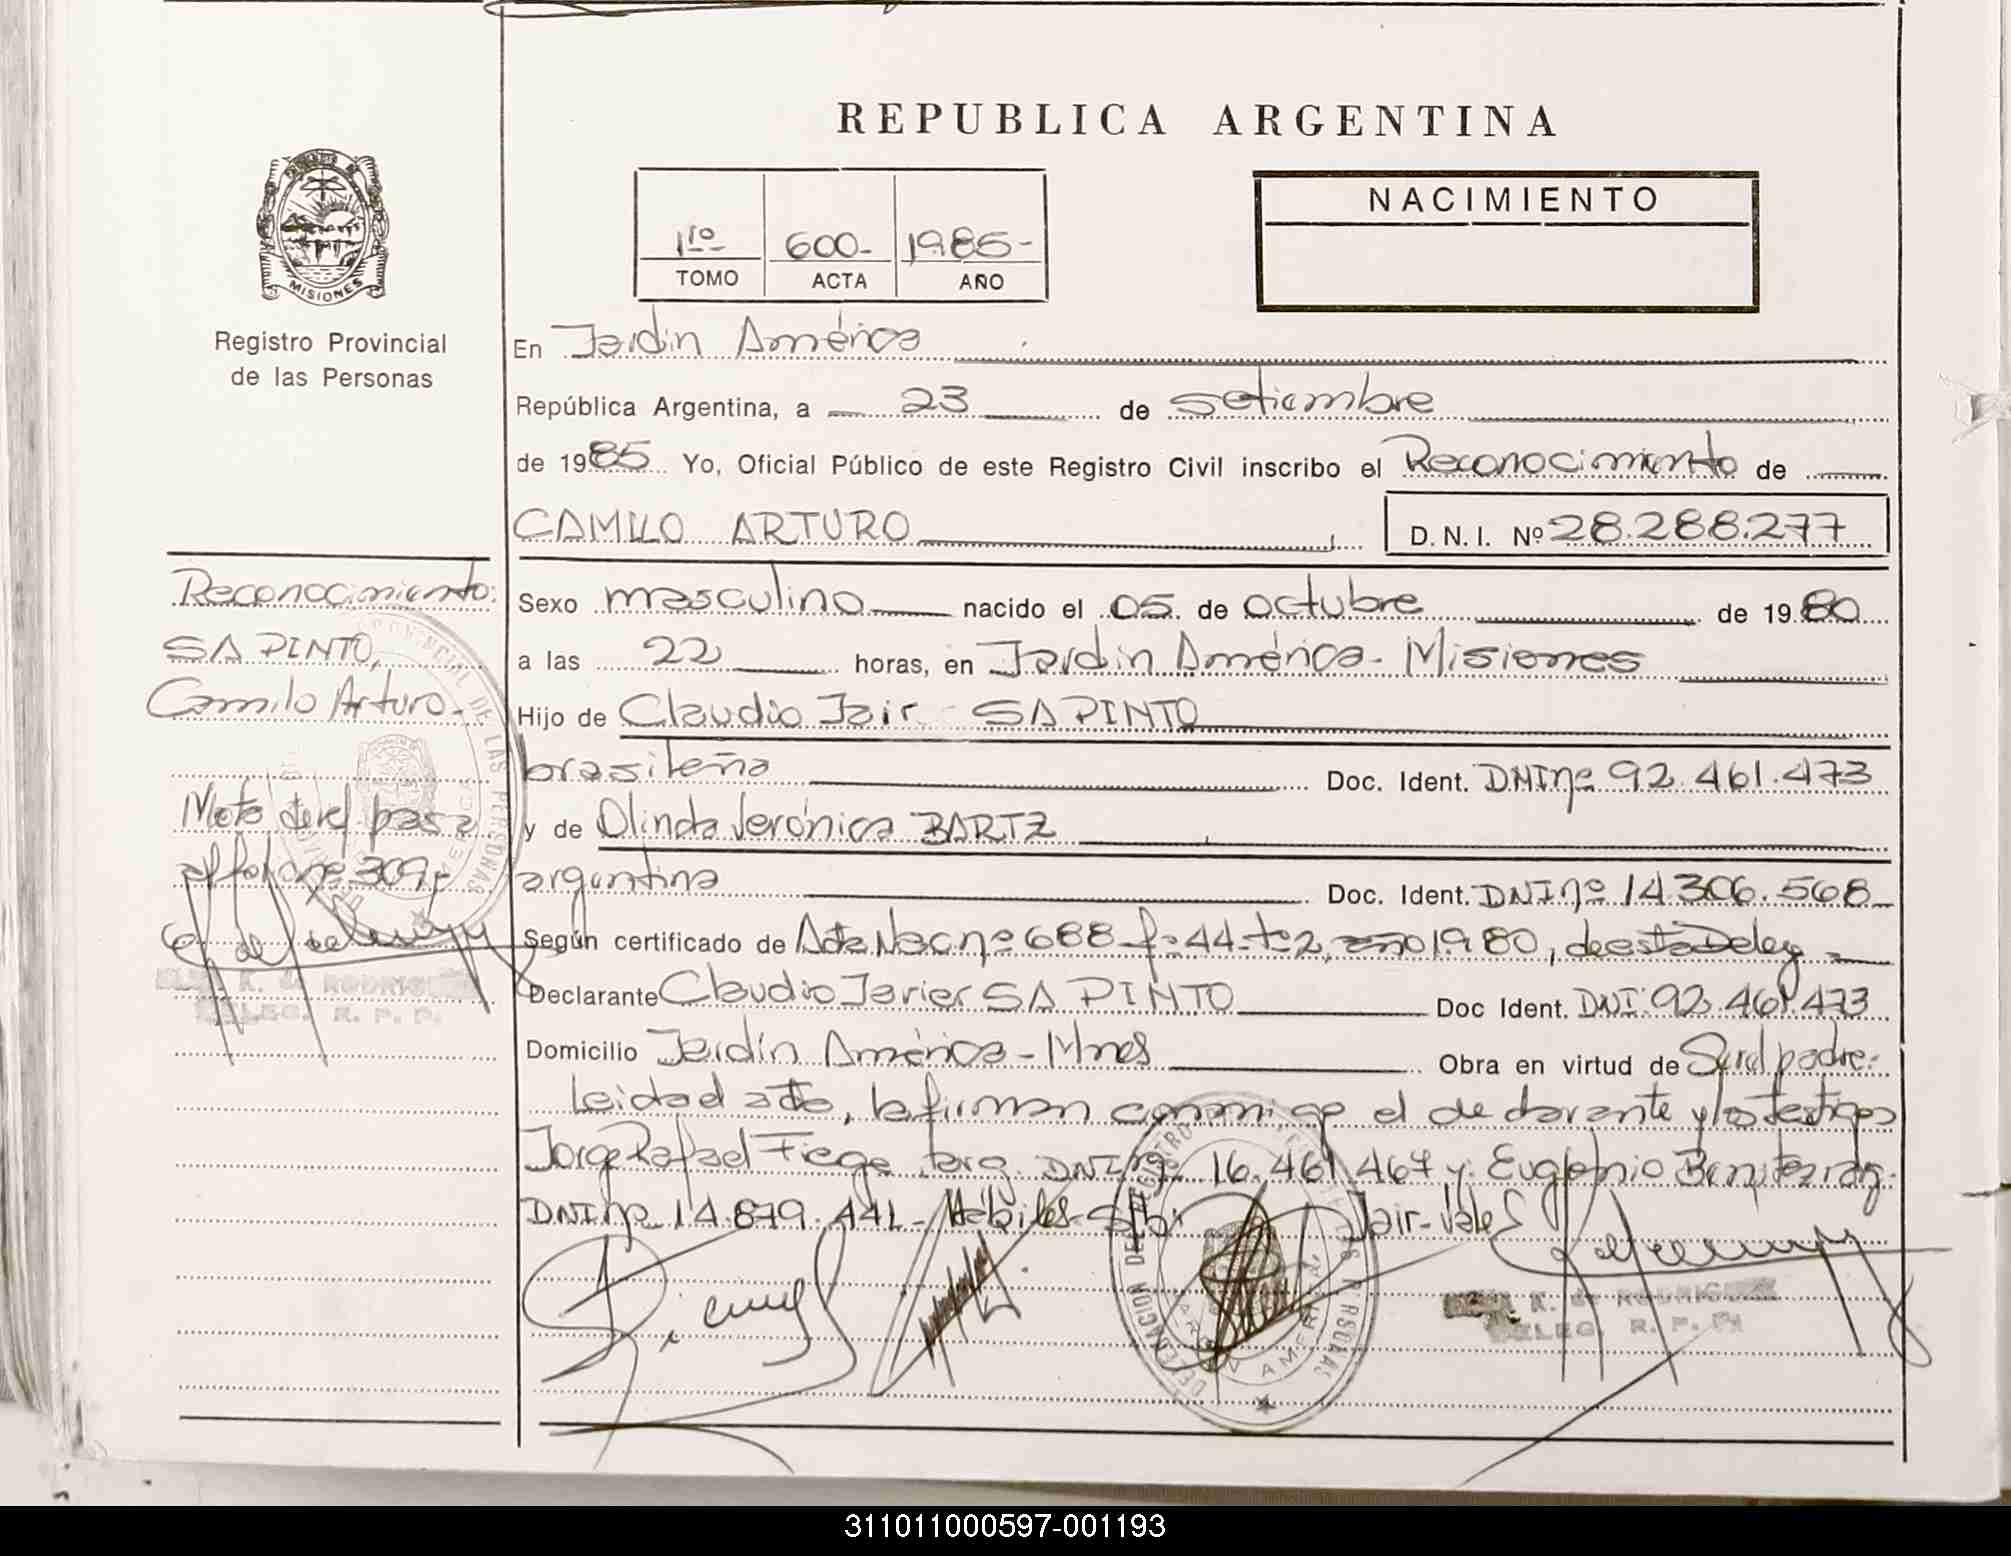 REPUBLICA ARGENTINA
NACIMIENTO
1ro 600- 1985-
TOMO ACTA AÑO
MISIONES
Registro Provincial
de las Personas
En Jardin América
República Argentina, a 23 de setiembre
de 1985 Yo, Oficial Público de este Registro Civil inscribo el Reconocimiento de
CAMILO ARTURO D. N. I. Nº 28.288.277
Sexo masculino nacido el 05 de octubre de 1980
a las 22 horas, en Jardin América - Misiones
Hijo de Claudio Jair SA PINTO
brasileña Doc. Ident. DNI nº 92.461.473
y de Olinda Verónica BARTZ
argentina Doc. Ident. DNI nº 14.306.568
Según certificado de Acta Nac nº 688 fº 44 tº 2, año 1980, de esta Deleg
Declarante Claudio Javier SA PINTO Doc Ident. DNI 92.461.473
Domicilio Jardín América - Mnes Obra en virtud de Ser el padre.
Leida el acta, la firman conmigo el declarante y los testigos
Jorge Rafael Fiege, arg. DNI nº 16.461.467 y Eugenio Benitez arg.
DNI nº 14.879.441 - Hábiles - S/b: Jair - Vale
Reconocimiento:
SA PINTO,
Camilo Arturo.
Nota de ref. pasa
al folio nº 309
K. de RODRIGUEZ
DELEG. R. P. P.
K. de RODRIGUEZ
DELEG. R. P. P.
311011000597-001193